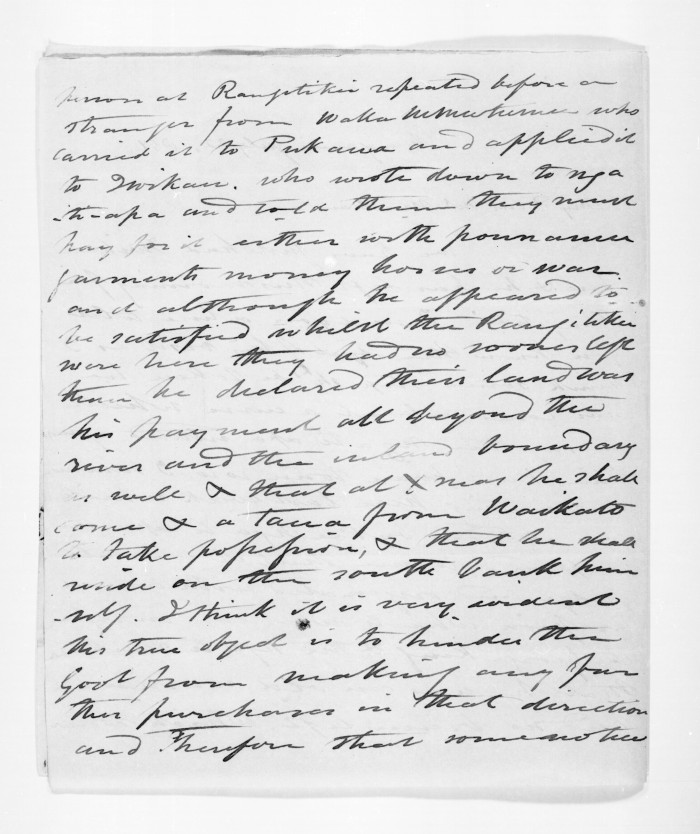 person at Rangitikei repeated before a
stranger from Waka who
carried it to Pukawa and applied it
to Iwikau. who wrote down to nga
-ti-apa and told them they must
pay for it either with pounamu
garments money horses or war.
and although he appeared to
be satisfied whilst the Rangitikei
were here they had no sooner left
than he declared their land was
his payment all beyond the
river and the inland boundary
as well & that at Xmas he shall
come & a taua from Waikato
to take possession, & that he shall
reside on the south bank him
-self. I think it is very evident
his true object is to hinder the
Govt from making any fur
ther purchases in that direction
and therefore that some notice